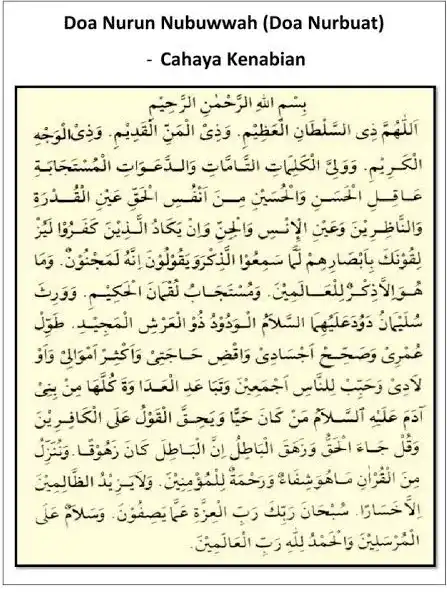 Doa Nurun Nubuwwah (Doa Nurbuat)
- Cahaya Kenabian
بِسْمِ اللهِ الرَّحْمٰنِ الرَّحِيْمِ
اَللّٰهُمَّ ذِى السُّلْطَانِ الْعَظِيْمِ. وَذِىْ الْمَنِّ الْقَدِيْمِ. وَذِىْ الْوَجْهِ
الْكَرِيْمِ. وَوَلِيِّ الْكَلِمَاتِ التَّامَّاتِ وَالدَّعَوَاتِ الْمُسْتَجَابَةِ
عَاقِلِ الْحَسَنِ وَالْحُسَيْنِ مِنْ اَنْفُسِ الْحَقِّ عَيْنِ الْقُدْرَةِ
وَالنَّاظِرِيْنَ وَعَيْنِ الْاِنْسِ وَالْجِنِّ وَاِنْ يَكَادُ الَّذِيْنَ كَفَرُوْا لَيُزْ
لِقُوْنَكَ بِاَبْصَارِهِمْ لَمَّا سَمِعُوا الذِّكْرَ وَيَقُوْلُوْنَ اِنَّهُ لَمَجْنُوْنٌ. وَمَا
هُوَ اِلَّا ذِكْرٌ لِلْعَالَمِيْنَ. وَمُسْتَجَابُ لُقْمَانَ الْحَكِيْمِ. وَوَرِثَ
سُلَيْمَانُ دَوُدَ عَلَيْهِمَا السَّلَامُ الْوَدُوْدُ ذُو الْعَرْشِ الْمَجِيْدِ. طَوِّلْ
عُمْرِىْ وَصَحِّحْ اَجْسَادِىْ وَاقْضِ حَاجَتِىْ وَاَكْثِرْ اَمْوَالِىْ وَاَوْ
لَادِىْ وَحَبِّبْ لِلنَّاسِ اَجْمَعِيْنَ وَتَبَاعَدِ الْعَدَاوَةَ كُلَّهَا مِنْ بَنِىْ
آدَمَ عَلَيْهِ السَّلَامُ مَنْ كَانَ حَيًّا وَيَحِقَّ الْقَوْلُ عَلَى الْكَافِرِيْنَ
وَقُلْ جَاءَ الْحَقُّ وَزَهَقَ الْبَاطِلُ اِنَّ الْبَاطِلَ كَانَ زَهُوْقًا. وَنُنَزِّلُ
مِنَ الْقُرْاٰنِ مَا هُوَ شِفَاءٌ وَرَحْمَةٌ لِلْمُؤْمِنِيْنَ. وَلَا يَزِيْدُ الظَّالِمِيْنَ
اِلَّا خَسَارًا. سُبْحَانَ رَبِّكَ رَبِّ الْعِزَّةِ عَمَّا يَصِفُوْنَ. وَسَلَامٌ عَلَى
الْمُرْسَلِيْنَ وَالْحَمْدُ لِلّٰهِ رَبِّ الْعَالَمِيْنَ.